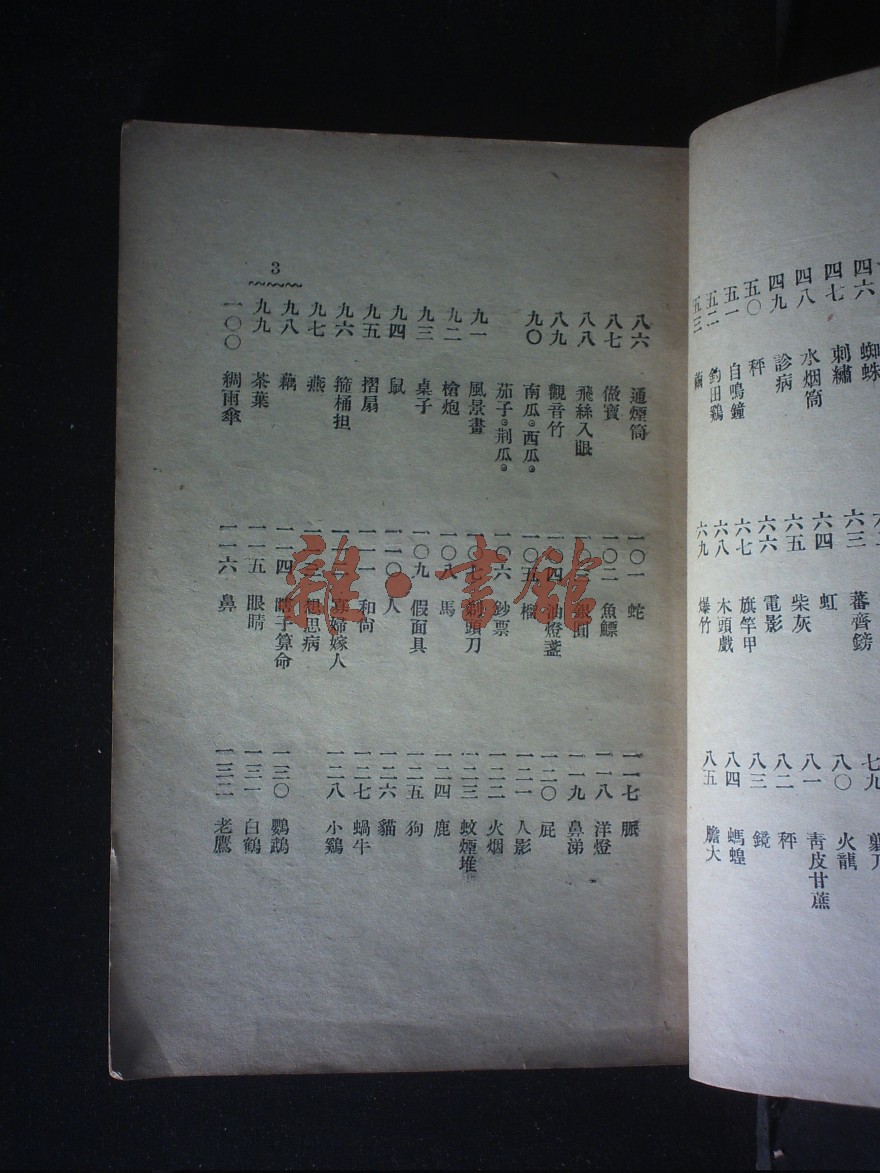 四六 蜘蛛
四七 刺繡
四八 水烟筒
四九 診病
五〇 秤
五一 自鳴鐘
五二 釣田鷄
五三
六三
六四 虹
六五 柴灰
六六 電影
六七 旗竿甲
六八 木頭戲
六九 爆竹
七九
八〇 火龍
八一 靑皮甘蔗
八二 秤
八三 鏡
八四 螞蝗
八五 膽大
3
八六 通煙筒
八七 做寶
八八 飛絲入眼
八九 觀音竹
九〇 南瓜。西瓜。
茄子。荆瓜。
九一 風景畫
九二 槍炮
九三 桌子
九四 鼠
九五 摺扇
九六 箍桶担
九七 燕
九八 藕
九九 茶葉
一〇〇 綢雨傘
一〇一 蛇
一〇二 魚鰾
一〇三 銀圓
一〇四 油燈盞
一〇五
一〇六 鈔票
一〇七 剃頭刀
一〇八 馬
一〇九 假面具
一一〇 人
一一一 和尙
一一二 寡婦嫁人
一一三 想思病
一一四 瞎子算命
一一五 眼睛
一一六 鼻
一一七 脈
一一八 洋燈
一一九 鼻涕
一二〇 屁
一二一 人影
一二二 火烟
一二三 蚊煙堆
一二四 鹿
一二五 狗
一二六 貓
一二七 蝸牛
一二八 小鷄
一三〇 鸚鵡
一三一 白鶴
一三二 老鷹
雜·書館